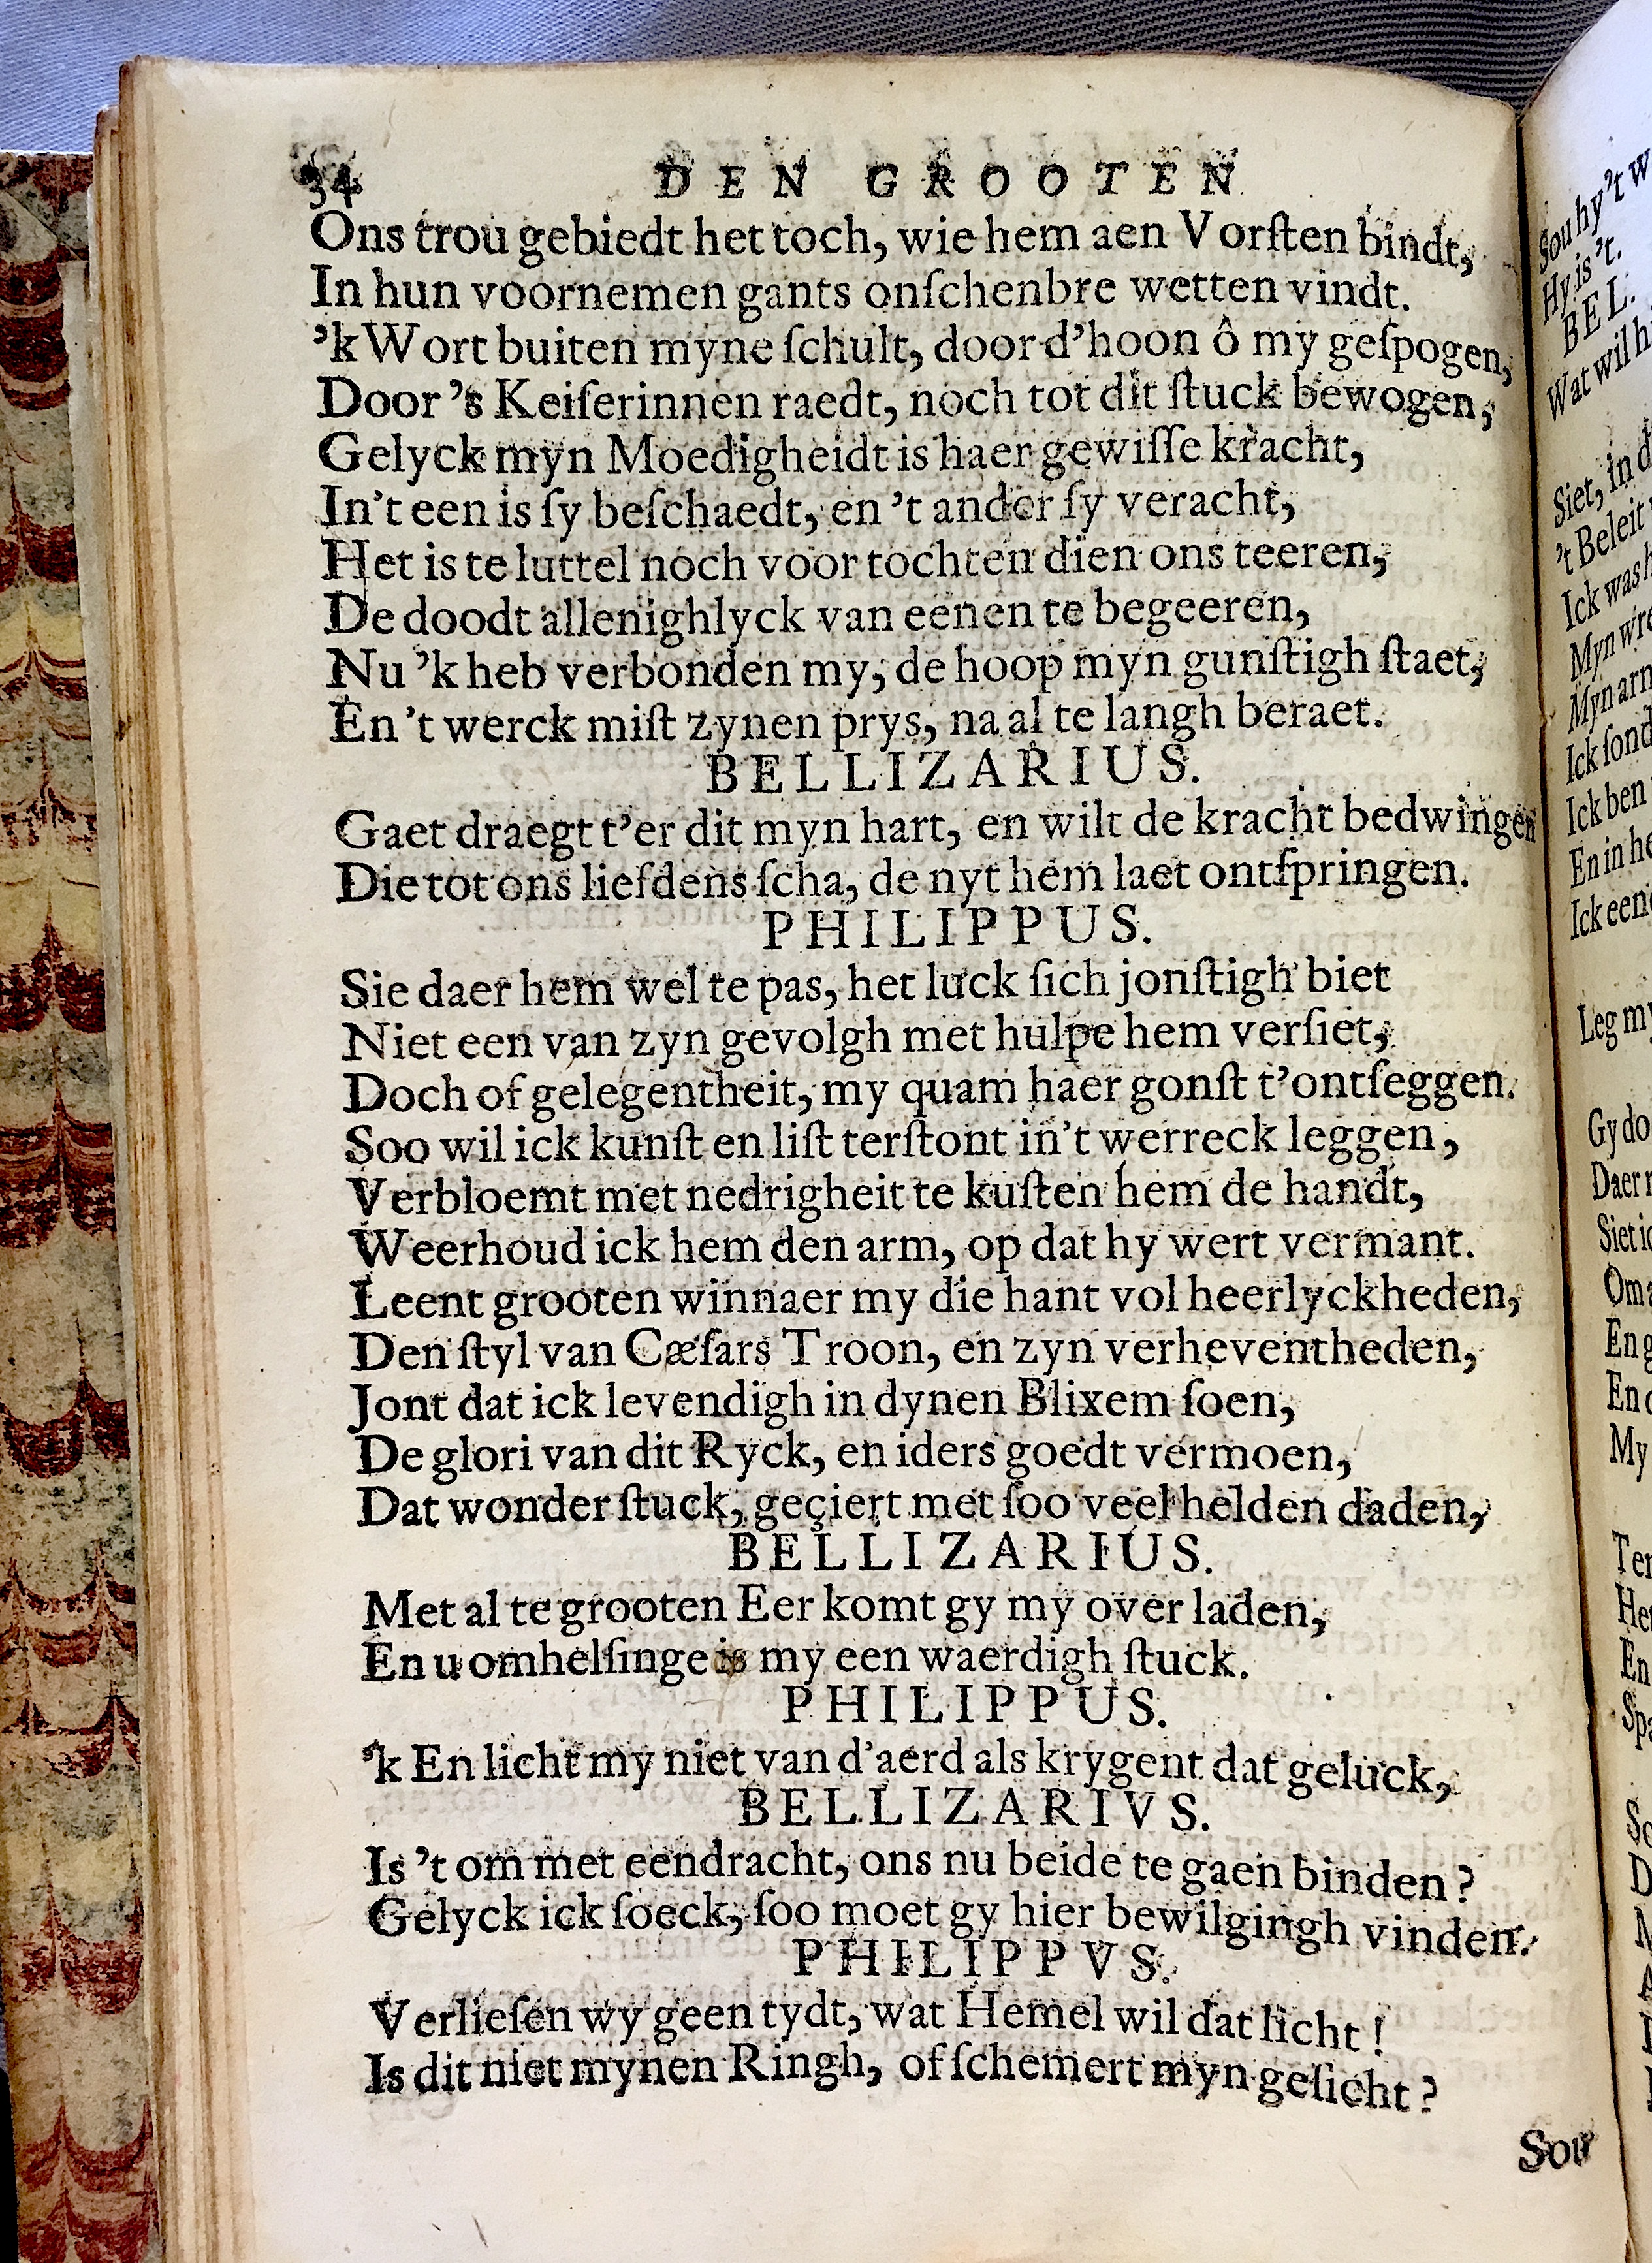 34 DEN GROOTEN
Ons trou gebiedt het toch, wie hem aen Vorſten bindt,
In hun voornemen gants onſchenbre wetten vindt.
’k Wort buiten myne ſchult, door d’hoon ô my geſpogen,
Door ’s Keiſerinnen raedt, noch tot dit ſtuck bewogen,
Gelyck myn Moedigheidt is haer gewiſſe kracht,
In’t een is ſy beſchaedt, en ’t ander ſy veracht,
Het is te luttel noch voor tochten dien ons teeren,
De doodt allenighlyck van eenen te begeeren,
Nu ’k heb verbonden my, de hoop myn gunſtigh ſtaet,
En ’t werck miſt zynen prys, na al te langh beraet.
BELLIZARIUS.
Gaet draegt t’er dit myn hart, en wilt de kracht bedwingen
Die tot ons liefdens ſcha, de nyt hem laet ontſpringen.
PHILIPPUS.
Sie daer hem wel te pas, het luck ſich jonſtigh biet
Niet een van zyn gevolgh met hulpe hem verſiet,
Doch of gelegentheit, my quam haer gonſt t’ontſeggen.
Soo wil ick kunſt en liſt terſtont in’t werreck leggen,
Verbloemt met nedrigheit te kuſten hem de handt,
Weerhoud ick hem den arm, op dat hy wert vermant.
Leent grooten winnaer my die hant vol heerlyckheden,
Den ſtyl van Cæſars Troon, en zyn verheventheden,
Jont dat ick levendigh in dynen Blixem ſoen,
De glori van dit Ryck, en iders goedt vermoen,
Dat wonder ſtuck, geçiert met ſoo veel helden daden,
BELLIZARIUS.
Met al te grooten Eer komt gy my over laden,
En u omhelſinge is my een waerdigh ſtuck.
PHILIPPUS.
’k En licht my niet van d’aerd als krygent dat geluck,
BELLIZARIVS.
Is ’t om met eendracht, ons nu beide te gaen binden?
Gelyck ick ſoeck, ſoo moet gy hier bewilgingh vinden.
PHILIPPVS.
Verlieſen wy geen tydt, wat Hemel wil dat licht!
Is dit niet mynen Ringh, of ſchemert myn geſicht?
Sou
Sou hy ’t
Hy is ’t.
BEL.
Wat wil
Siet, in
’t Beleit
Ick was
Myn
Myn
Ick
Ick ben
En in
Ick
Leg
Gy
Daer
Siet
En
My
En